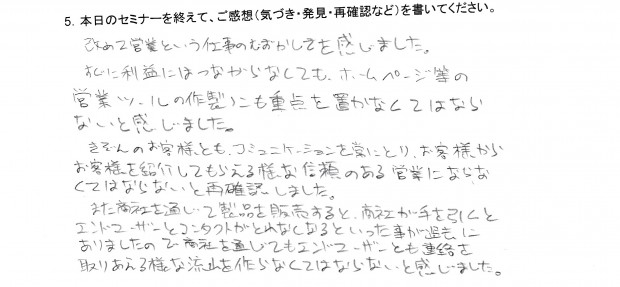 5. 本日のセミナーを終えて、ご感想（気づき・発見・再確認など）を書いてください。
改めて営業という仕事のむずかしさを感じました。
すぐに利益にはつながらなくても、ホームページ等の
営業ツールの作製にも重点を置かなくてはなら
ないと感じました。
きぞんのお客様とも、コミュニケーションを常にとり、お客様から
お客様を紹介してもらえる様な信頼のある営業にならな
くてはならないと再確認しました。
また商社を通じて製品を販売すると、商社が手を引くと
エンドユーザーとコンタクトがとれなくなるといった事が過去に
ありましたので商社を通じてもエンドユーザーとも連絡を
取りあえる様な流れを作らなくてはならないと感じました。